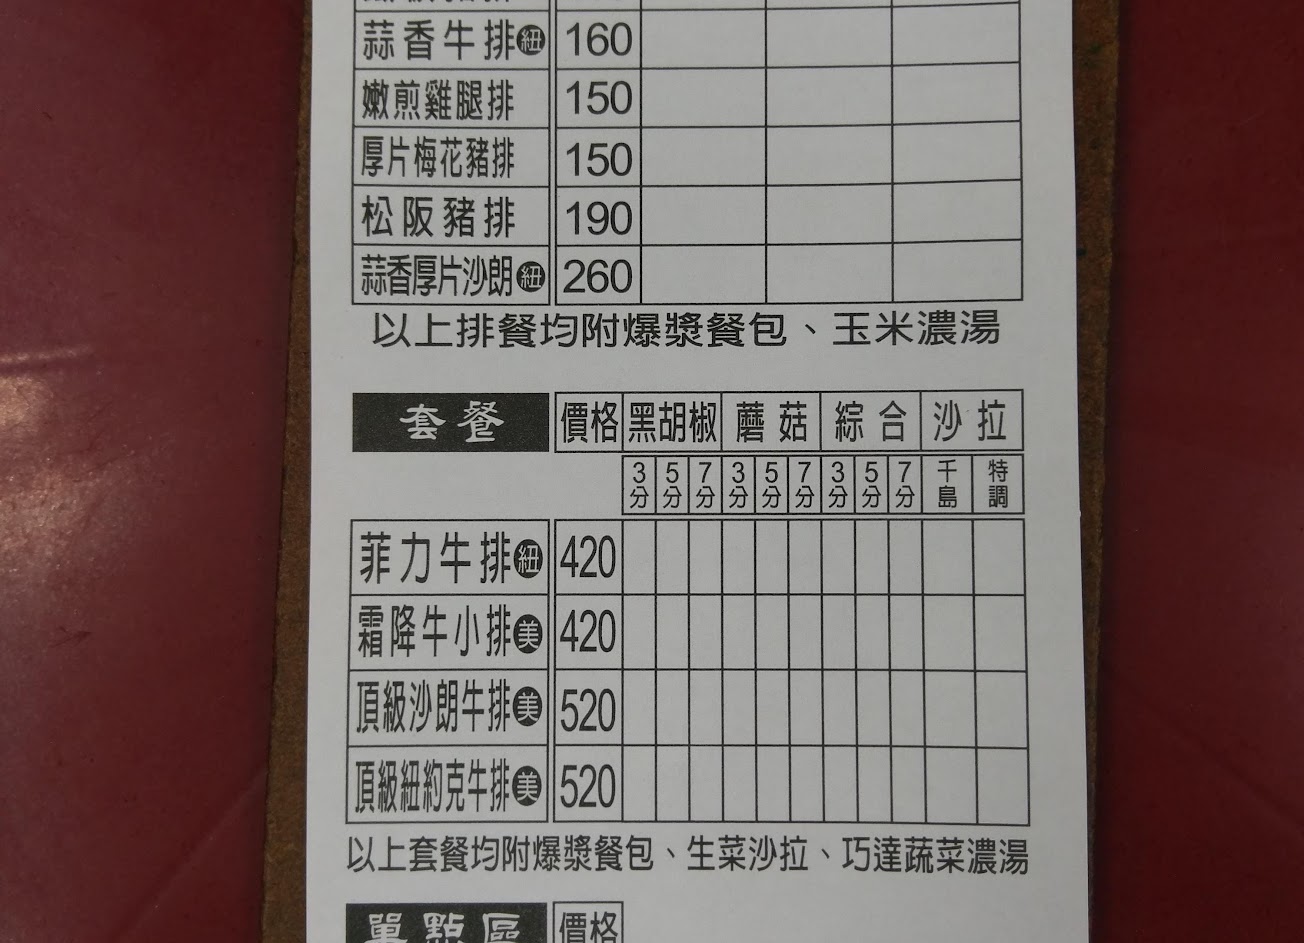 蒜香牛排紐 160
嫩煎雞腿排 150
厚片梅花豬排 150
松阪豬排 190
蒜香厚片沙朗紐 260
以上排餐均附爆漿餐包、玉米濃湯
套餐 價格 黑胡椒 蘑菇 綜合 沙拉
3分 5分 7分 3分 5分 7分 3分 5分 7分 千島 特調
菲力牛排紐 420
霜降牛小排美 420
頂級沙朗牛排美 520
頂級紐約克牛排美 520
以上套餐均附爆漿餐包、生菜沙拉、巧達蔬菜濃湯
單點區 價格